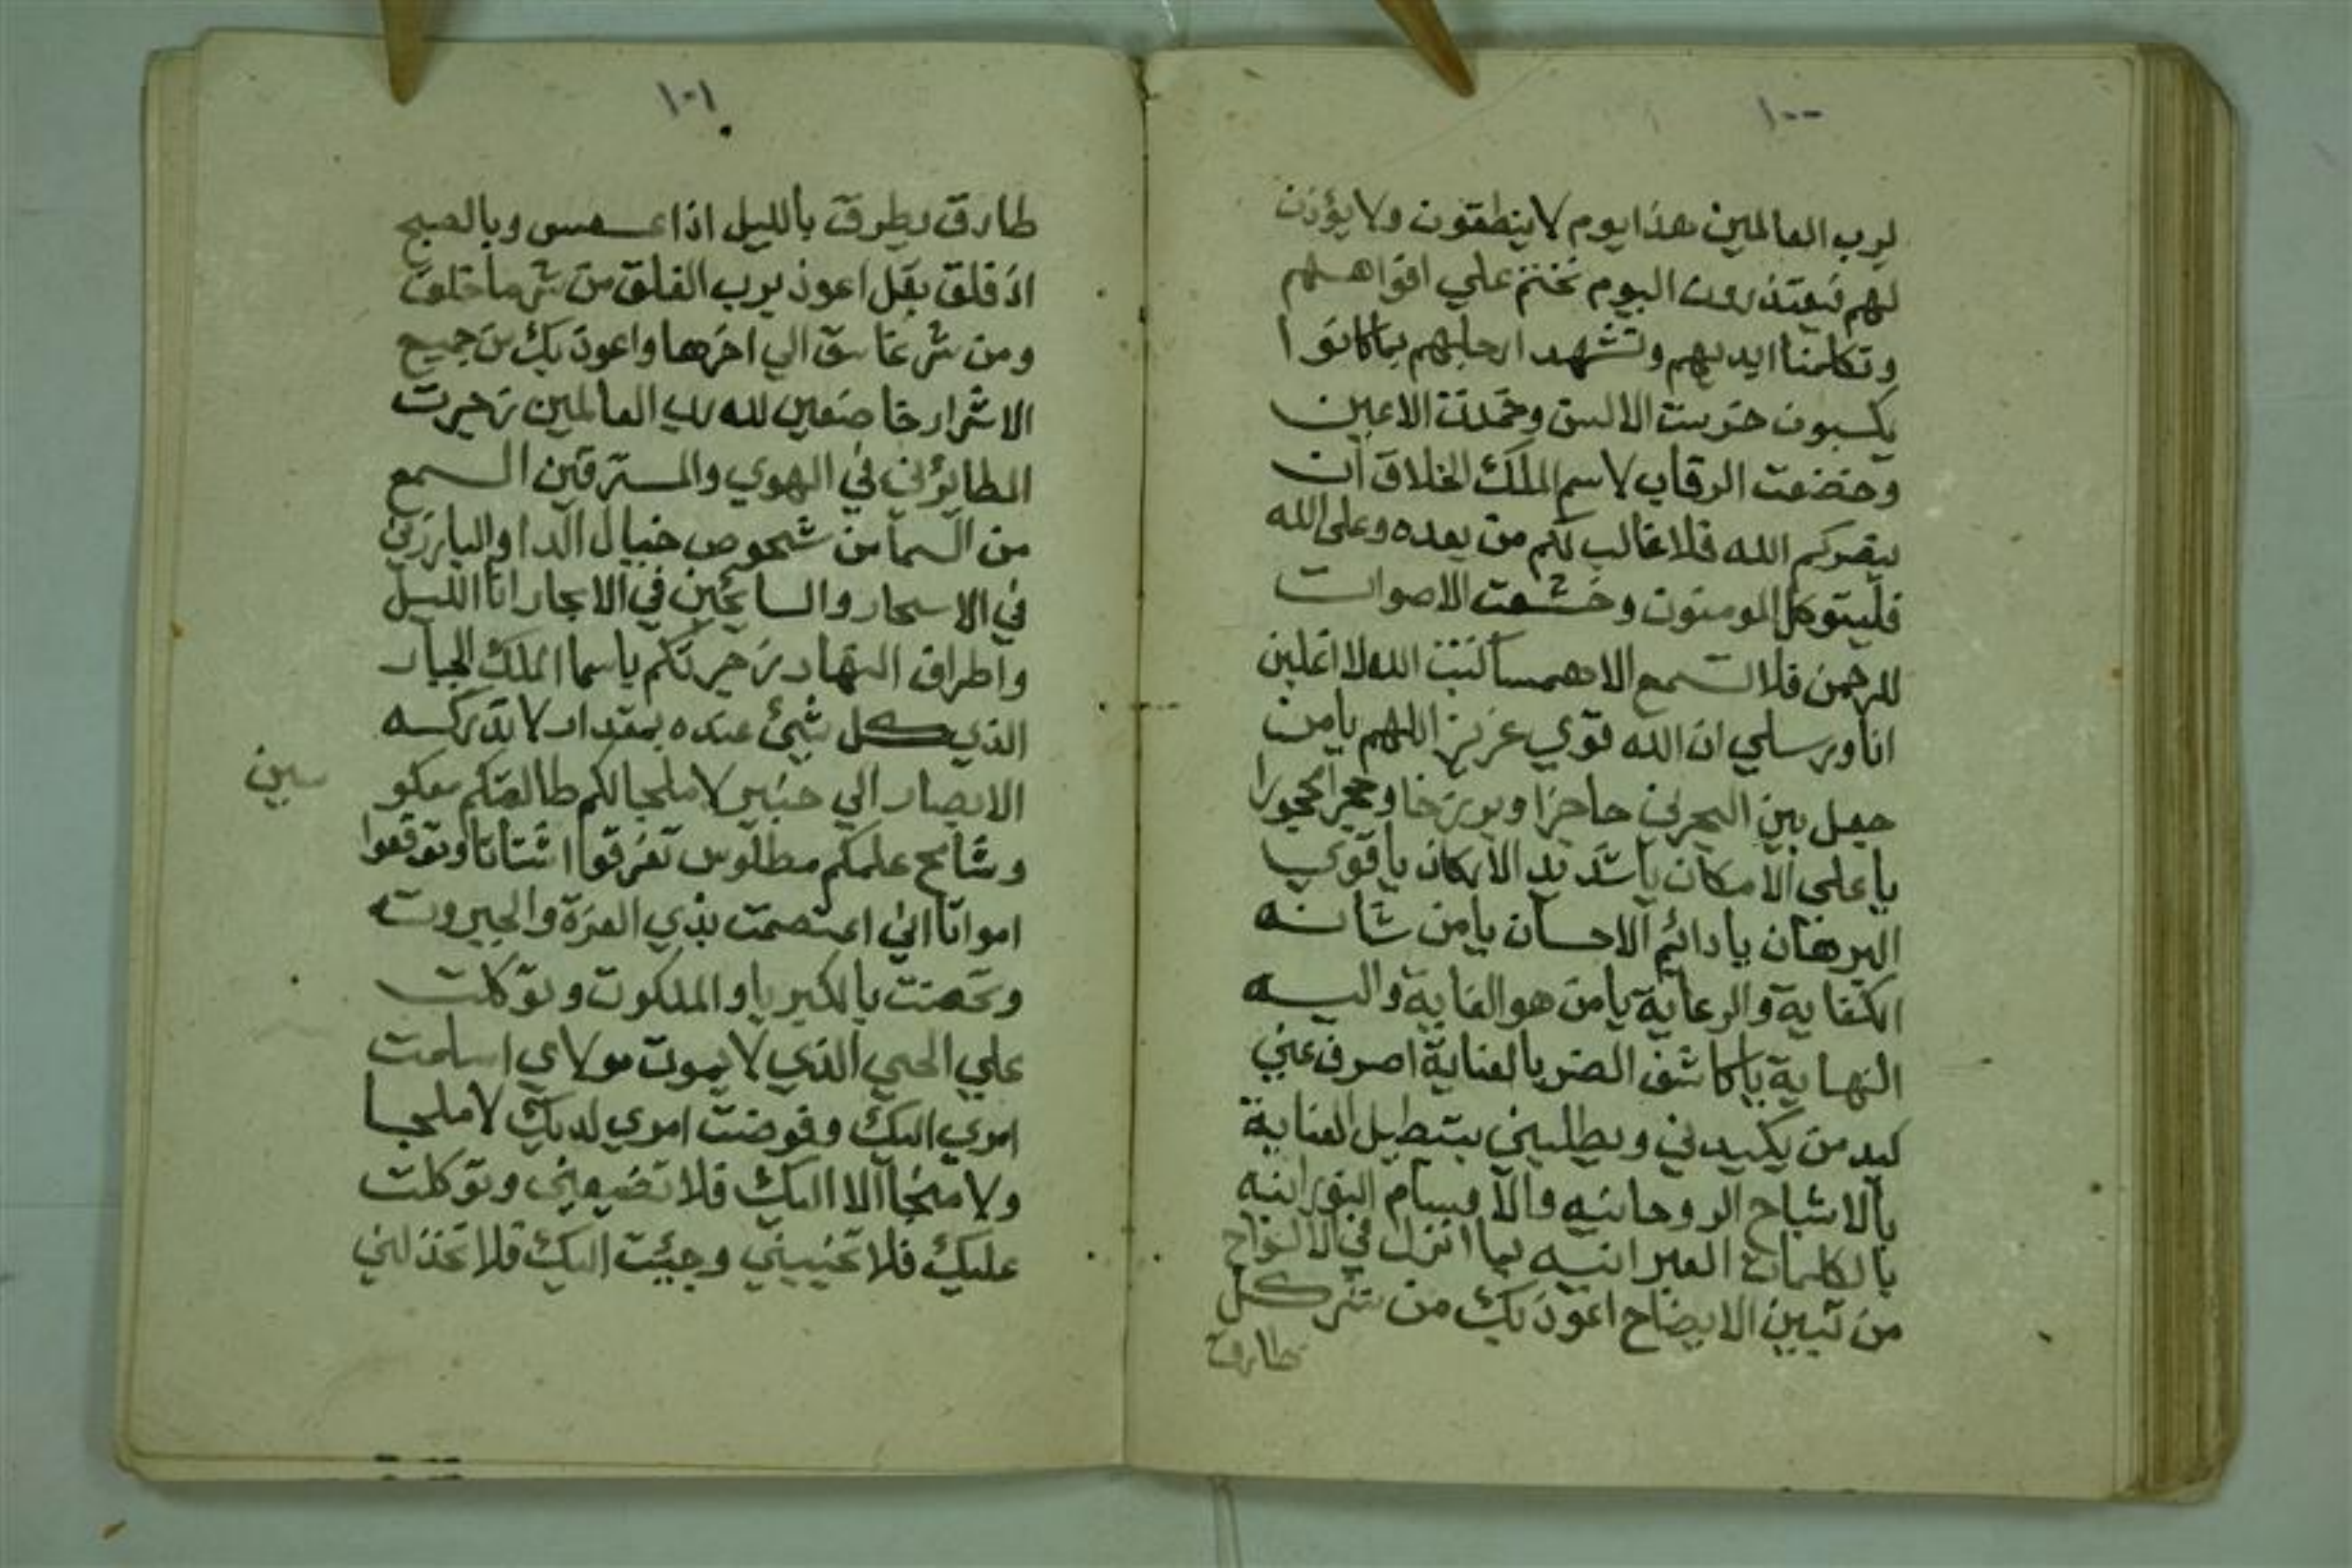 ١٠٠
لرب العالمين هذا يوم لا ينطقون ولا يؤذن
لهم فيعتذرون اليوم نختم علي افواههم
وتكلمنا ايديهم وتشهد ارجلهم بما كانوا
يكسبون خرست الالسن وخمدت الاعين
وخضعت الرقاب لاسم الملك الخلاق ان
ينصركم الله فلا غالب لكم من بعده وعلى الله
فليتوكل المومنون وخشعت الاصوات
للرحمن فلا تسمع الا همسا كتب الله لاغلبن
انا ورسلي ان الله قوي عزيز اللهم يا من
جعل بين البحرين حاجزا وبرزخا وحجرا محجورا
يا علي الامكان يا شديد الاركان يا قوي
البرهان يا دائم الاحسان يا من شانه
الكفاية والرعاية يا من هو الغاية واليه
النهاية يا كاشف الضر بالعناية اصرف عني
كيد من يكيدني ويطلبني العناية
بالاشباح الروحانيه والاقسام النورانيه
بالكلمات العبرانيه بما انزل في الالواح
من تبيين الايضاح اعوذ بك من شر كل
طارق
١٠١
طارق يطرق بالليل اذا عسعس وبالصبح
اذ فلق بقل اعوذ برب الفلق من شر ما خلق
ومن شر غاسق الي اخرها واعوذ بك من جميع
الاشرار خاضعين لله رب العالمين زجرت
الطائرين في الهوي والمسترقين السمع
من السما من شخوص خيال الدا والبارزين
في الاسحار والسائحين في الابحار انا الليل
واطراف النهار زجرتكم باسما الملك الجبار
الذي كل شيئ عنده بمقدار لا تدركه
الابصار الي خبير لا ملجا لكم طالعتكم معكو
سين
وشامخ علمكم مطلوس تفرقوا اشتاتا وتوقعوا
امواتا اني اعتصمت بذي العزة والجبروت
وتحصنت بالكبريا والملكوت وتوكلت
علي الحي الذي لا يموت مولاي اسلمت
امري اليك وفوضت امري لديك لا ملجا
ولا منجا الا اليك فلا تضيعني وتوكلت
عليك فلا تخيبني وجيئت اليك فلا تخذلني